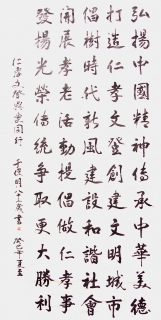 弘揚中國精神傳承中華美德
打造仁孝文登創建文明城市
倡樹時代新風建設和諧社會
開展孝老活動提倡做仁孝事
發揚光榮傳統爭取更大勝利
仁孝文登與愛同行
明八十三歲書
癸巳年夏